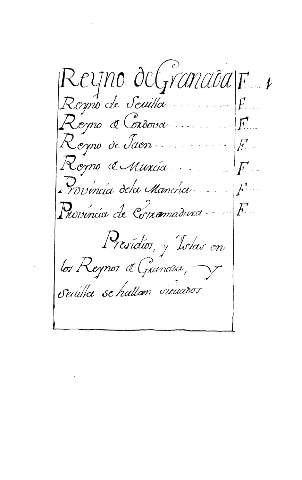 Reyno de Granada F.....1
Reyno de Sevilla .......... F....
Reyno de Cordova ....... F....
Reyno de Jaén .......... F....
Reyno de Murcia ....... F....
Provincia dela Mancha ..... F....
Provincia de Extramadura .... F....
Presidios, y Yslas en
los Reynos de Granada, y
Sevilla se hallan situados